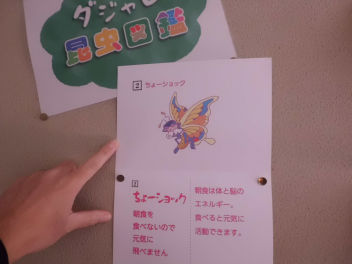 ダジャレ
昆虫図鑑
2 ちょーショック
2
ちょーショック
朝食を
食べないので
元気に
飛べません
朝食は体と脳の
エネルギー。
食べると元気に
活動できます。